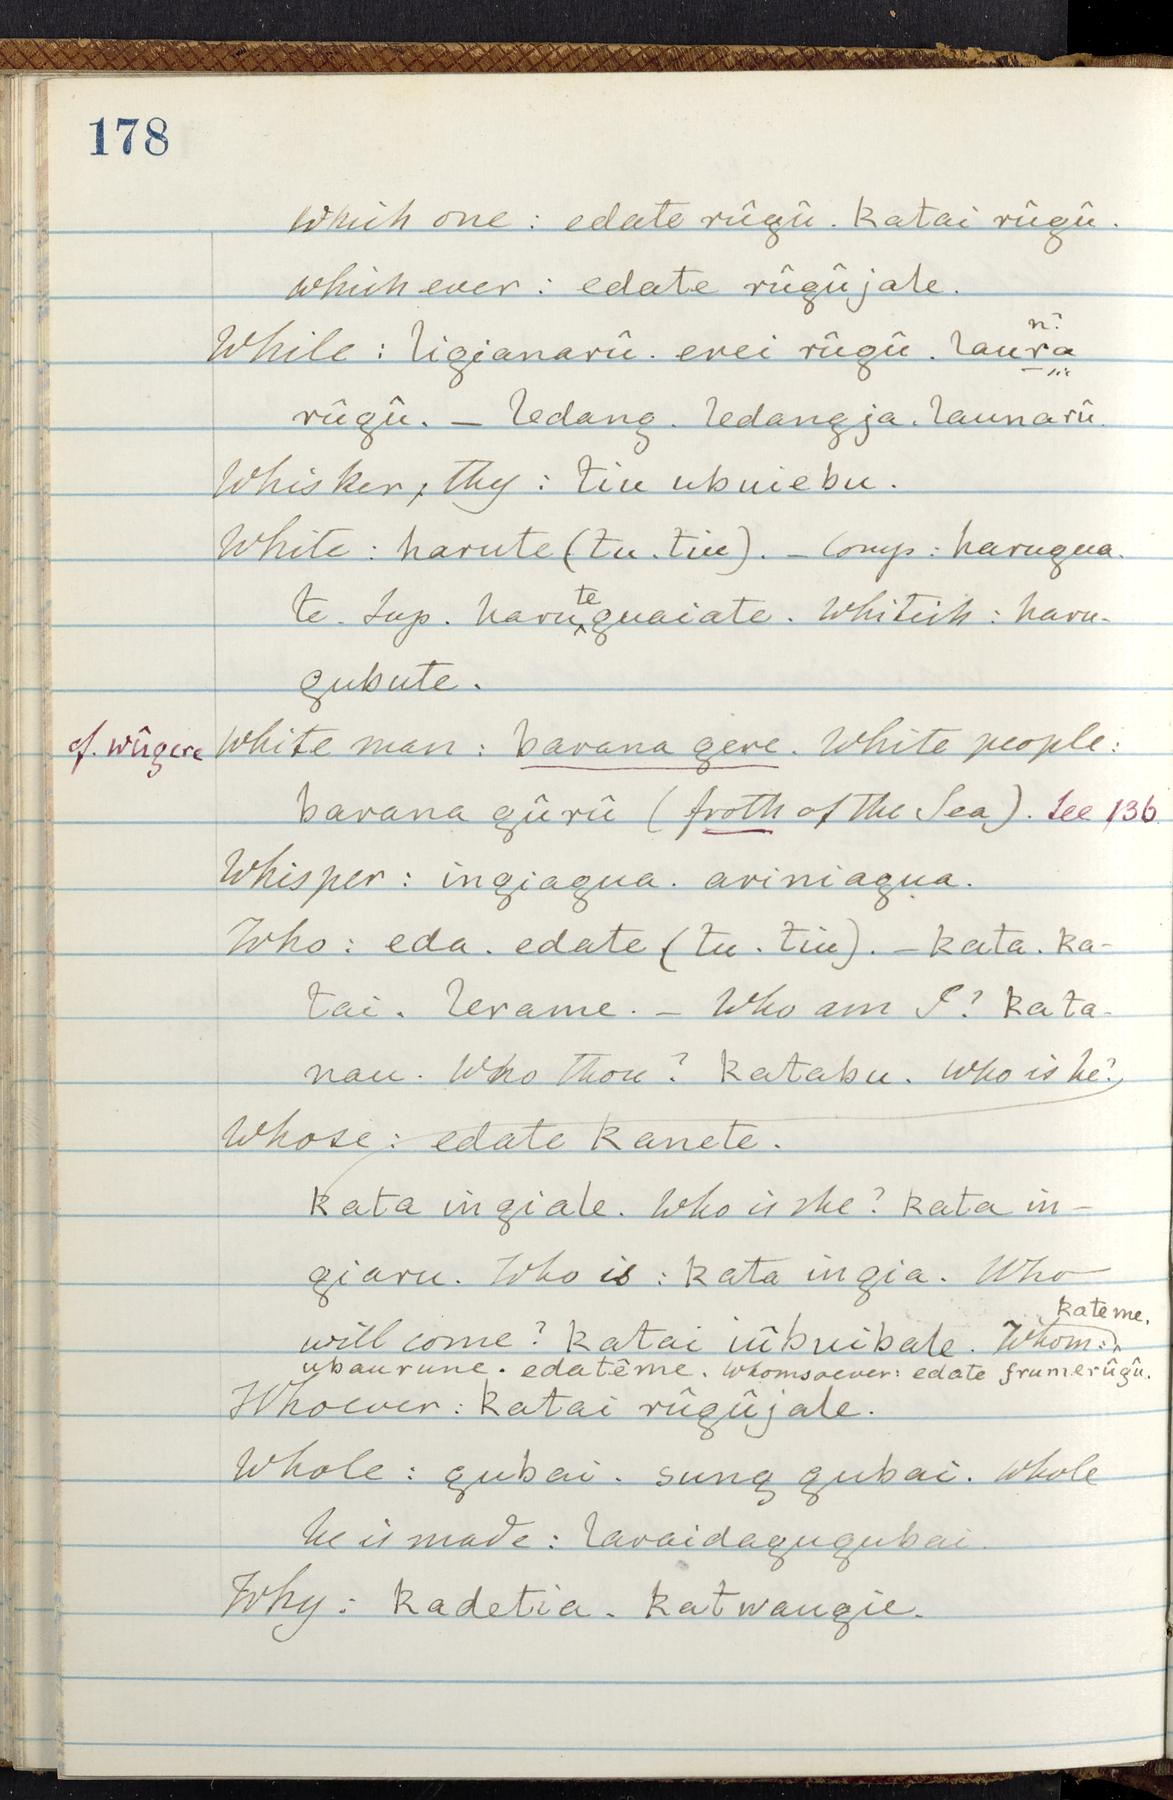 178
Which one : edate rûgû . katai rûgû .
which ever : edate rûgûjale .
n?
While : ligianarû . erei rûgû . laura
rûgû . — ledang . ledangja . launarû .
Whisker, thy : tiu ubuiebu .
White : harute (tu . tiu) . — Comp : harugua-
te . Sup . haruteguaiate . Whitish : haru-
gubute .
cf. wûgere White man : barana gere . White people :
barana gûrû ( froth of the Sea ) . See 136
Whisper : ingiagua . ariniagua .
Who : eda . edate (tu . tiu) . — kata . ka-
tai . lerame . — Who am I ? kata-
nau . Who thou ? katabu . Who is he ?
Whose : edate kanete .
kata ingiale . Who is she ? kata in-
giaru . Who is : kata ingia . Who
kateme .
will come ? katai iûbuibale . Whom :
ubaurune . edatême . Whomsoever : edate frumerûgû .
Whoever : katai rûgûjale .
Whole : gubai . sung gubai . Whole
he is made : laraidagugubai .
Why : kadetia . katwaugie .